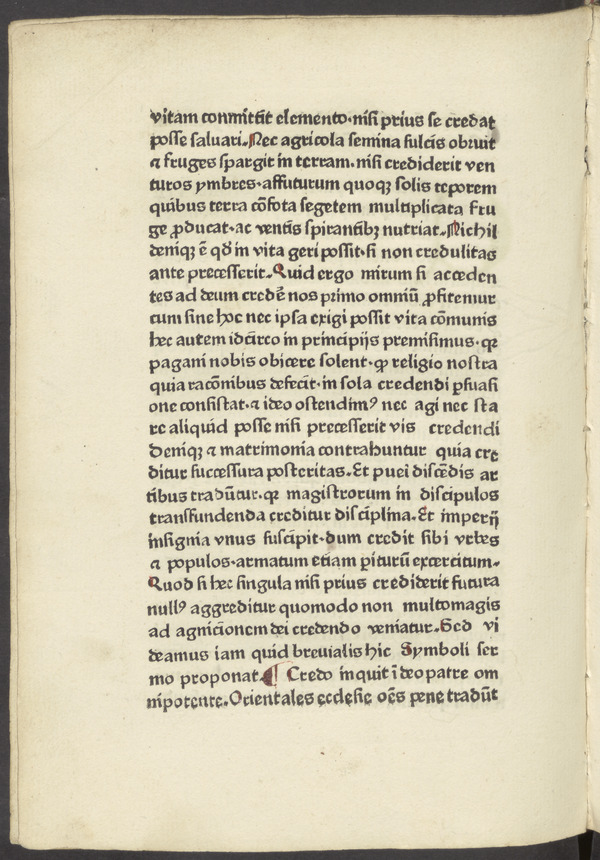 vitam committit elemento·nisi prius se credat
posse saluari.Nec agricola semina sulcis obruit
⁊ fruges spargit in terram.nisi crediderit ven
turos ymbres·affuturum quoqꝫ solis teporem
quibus terra cōfota segetem multiplicata fru
ge ꝓducat·ac ventis spirantibꝫ nutriat.Nichil
deniqꝫ ē qd̄ in vita geri possit·si non credulitas
ante precesserit.Quid ergo mirum si acceden
tes ad deum credē nos primo omniū ꝓfitemur
cum sine hoc nec ipsa exigi possit vita cōmunis
hec autem idcirco in principijs premisimus·qꝛ
pagani nobis obicere solent·ꝙ religio nostra
quia racōnibus defecit·in sola credendi ꝑsuasi
one consistat·⁊ ideo ostendimꝰ nec agi nec sta
re aliquid posse nisi precesserit vis credendi
Deniqꝫ ⁊ matrimonia contrahuntur quia cre
ditur successura posteritas.Et puei discēdis ar
tibus tradūtur·qꝛ magistrorum in discipulos
transfundenda creditur disciplina.Et imperij
insignia vnus suscipit·dum credit sibi vrbes
⁊ populos·armatum etiam ꝑiturū excercitum.
Quod si hec singula nisi prius crediderit futura
nullꝰ aggreditur quomodo non multomagis
ad agnicionem dei credendo veniatur.Sed vi
deamus iam quid breuialis hic Symboli ser
mo proponat.¶ Credo inquit ī deo patre om
nipotente.Orientales ecclesie oēs pene tradūt